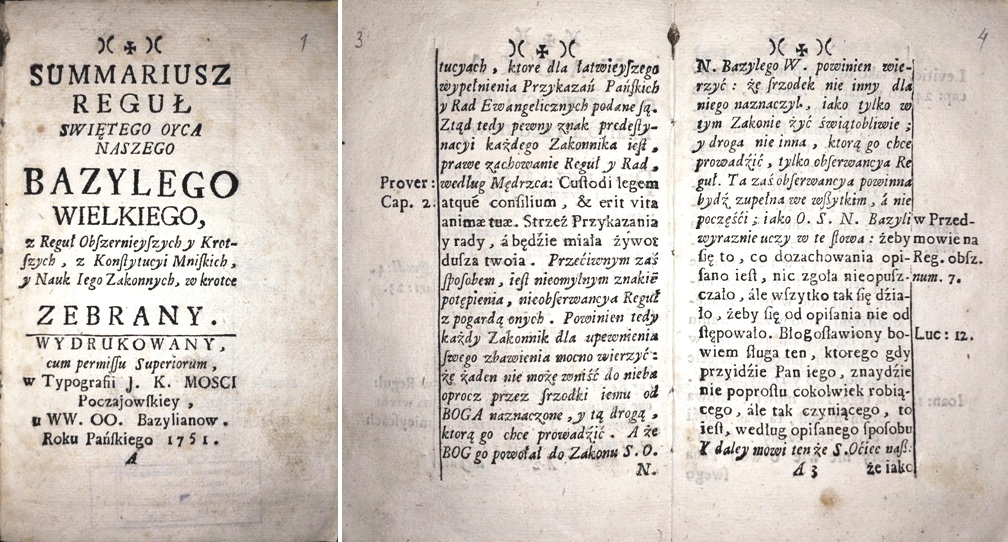 1
SUMMARIUSZ
REGUŁ
SWIĘTEGO OYCA
NASZEGO
BAZYLEGO
WIELKIEGO,
z Reguł Obſzernieyſzych y Krot-
ſzych, z Konſtytucyi Mniſkich,
y Nauk Iego Zakonnych, w krotce
ZEBRANY.
WYDRUKOWANY,
cum permiſſu Superiorum,
w Typografii J. K. MOSCI
Poczajowſkiey,
u WW. OO. Bazylianow.
Roku Pańſkiego 1751.
A
3
tucyach, ktore dla łatwieyſzego
wypełnienia Przykazań Pańſkich
y Rad Ewangelicznych podane ſą.
Ztąd tedy pewny znak predeſty-
nacyi każdego Zakonnika ieſt,
prawe zachowanie Reguł y Rad,
Prover: według Mędrzca: Cuſtodi legem
Cap. 2. atquè conſilium, & erit vita
animæ tuæ. Strzeż Przykazania
y rady, á będźie miała żywot
dusza twoia. Przećiwnym zaś
ſpoſobem, ieſt nieomylnym znakiē
potępienia, nieobſerwancya Reguł
z pogardą onych. Powinien tedy
każdy Zakonnik dla upewnienia
ſwego zbawienia mocno wierzyć:
żę żaden nie możę wniść do nieba
oprocz przez ſrzodki iemu od
BOGA naznaczone, y tą drogą,
ktorą go chce prowadźić. A że
BOG go powołał do Zakonu S. O.
N.
4
N. Bazylego W. powinien wie-
rzyć: żę ſrzodek nie inny dla
niego naznaczył, iako tylko w
tym Zakonie żyć świątobliwie;
y droga nie inna, ktorą go chce
prowadźić, tylko obſerwancya Re
guł. Ta zaś obſerwancya powinna
bydź zupełna we wſzytkim, á nie
poczęśći; iako O. S. N. Bazyli w Przed-
wyraznie uczy w te ſłowa: żeby mowie na
się to, co dozachowania opi- Reg. obsz.
ſano ieſt, nic zgoła nieopusz- num. 7.
czało, ále wſzytko tak się dźia-
ło, żeby się od opiſania nie od
ſtępowało. Błogoſławiony bo- Luc: 12.
wiem ſługa ten, ktorego gdy
przyidźie Pan iego, znaydźie
nie poproſtu cokolwiek robią-
cego, ále tak czyniącego, to
ieſt, według opiſanego ſpoſobu
Y daley mowi ten że S. Oćiec naſz.
A 3 że iako